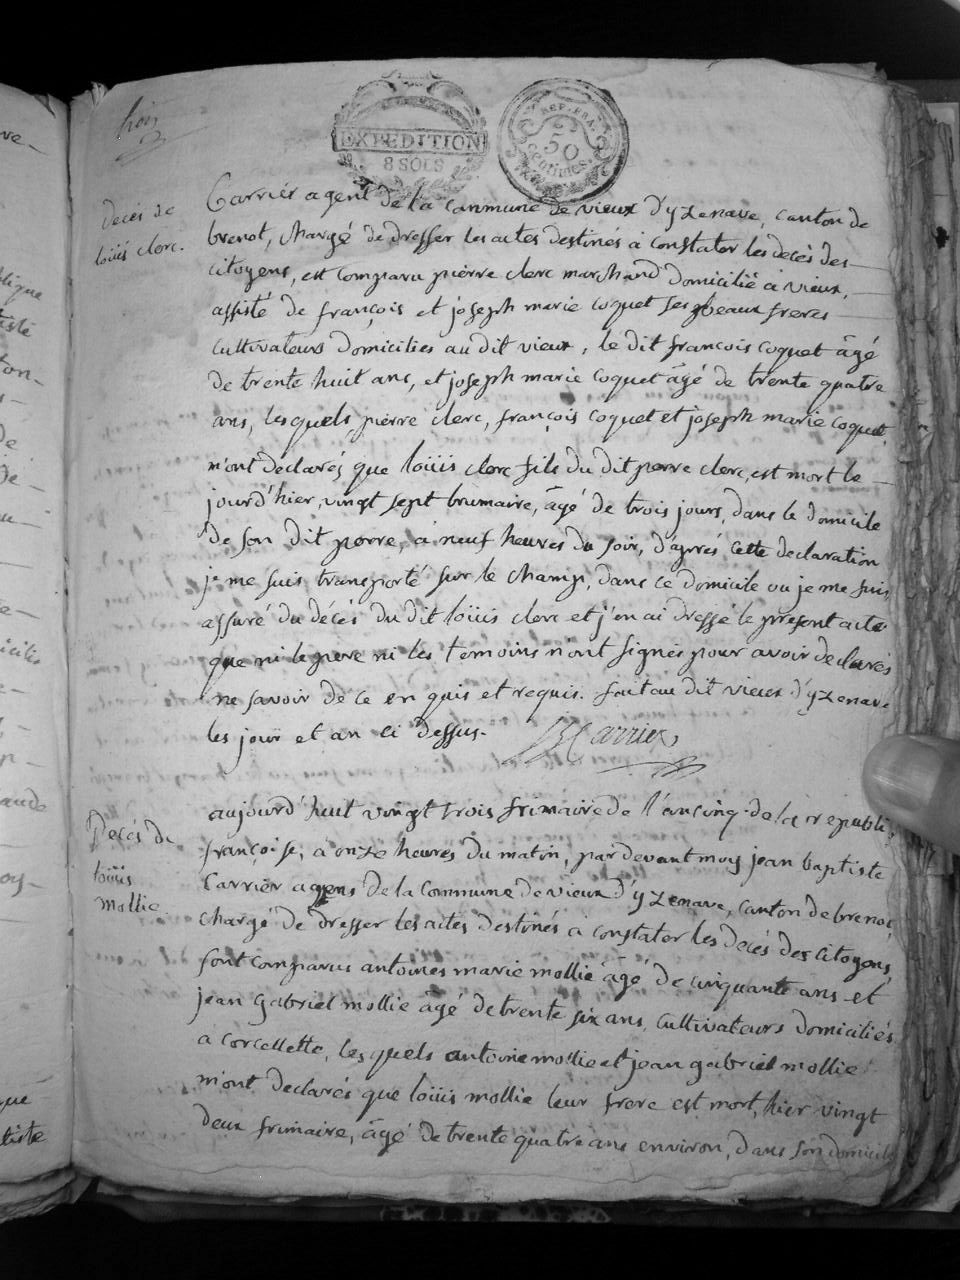 trois
EXPEDITION
8 SOLS
REP. FRA.
50
centimes.
Décés de
loüis clerc.
Carrier agent de la Commune de vieux d'yzenave, canton de
brenot, chargé de dresser les actes destinés à constater les decès des
citoyens, est comparu pierre clerc marchand domicilié à vieux,
assisté de françois et joseph marie coquet ses beaux freres
cultivateurs domiciliés au dit vieux, le dit françois coquet âgé
de trente huit ans, et joseph marie coquet âgé de trente quatre
ans, lesquels pierre clerc, françois coquet et joseph marie coquet
m'ont declarés que loüis clerc fils du dit pierre clerc, est mort le
jourd'hier, vingt sept brumaire, âgé de trois jours, dans le domicile
de son dit perre, à neuf heures du soir, d'aprrés cette declaration
je me suis transporté sur le champ, dans ce domicile ou je me suis
assuré du décés du dit loüis clerc et j'en ai dressé le present acte
que ni le pere ni les temoins n'ont signés pour avoir declarés
ne savoir de ce en quis et requis. fait au dit vieux d'yzenave
les jour et an ci dessus. JBCarrier
Decés de
loüis
mollie
aujourd'huit vingt trois frimaire de l'an cinq de la republi
françoise, à onze heures du matin, pardevant moy jean baptiste
Carrier agens de la Commune de vieux d'yzenave, canton de brenot
chargé de dresser les actes destinés à constater les decés des citoyens,
sont comparus antoines marie mollie âgé de cinquante ans et
jean gabriel mollie âgé de trente six ans, cultivateurs domiciliés
à corcellette, lesquels antoine mollie et jean gabriel mollie
m'ont declarés que loüis mollie leur frere est mort, hier vingt
deux frimaire, âgé de trente quatre ans environ, dans son domicile